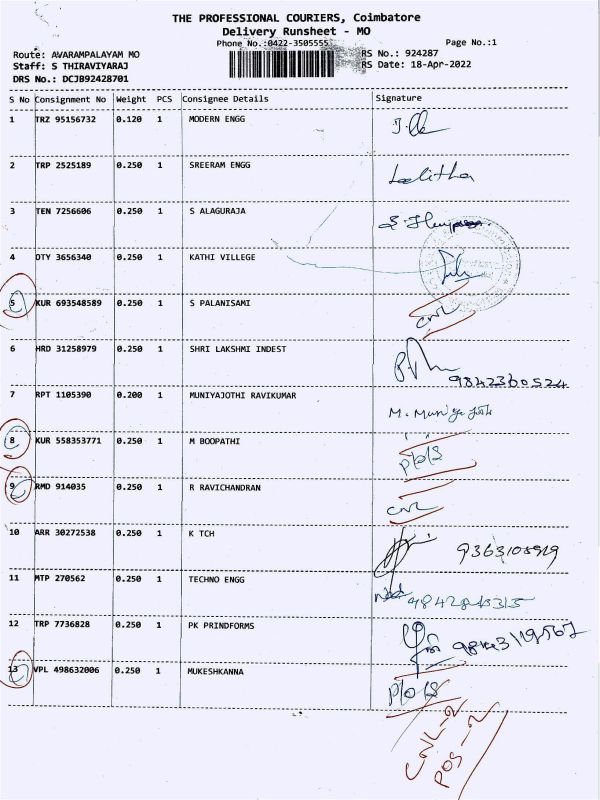 THE PROFESSIONAL COURIERS, Coimbatore
Delivery Runsheet - MO
Phone No.:0422-3505555 Page No.:1
Route: AVARAMPALAYAM MO RS No.: 924287
Staff: S THIRAVIYARAJ RS Date: 18-Apr-2022
DRS No.: DCJB92428701
S No Consignment No Weight PCS Consignee Details Signature
1 TRZ 95156732 0.120 1 MODERN ENGG
2 TRP 2525189 0.250 1 SREERAM ENGG Lalitha
3 TEN 7256606 0.250 1 S ALAGURAJA
4 OTY 3656340 0.250 1 KATHI VILLEGE
5 KUR 693548589 0.250 1 S PALANISAMI CNL
6 HRD 31258979 0.250 1 SHRI LAKSHMI INDEST 9842360524
7 RPT 1105390 0.200 1 MUNIYAJOTHI RAVIKUMAR M. Muniyajothi
8 KUR 558353771 0.250 1 M BOOPATHI P/o/S
9 RMD 914035 0.250 1 R RAVICHANDRAN CNL
10 ARR 30272538 0.250 1 K TCH 9363105919
11 MTP 270562 0.250 1 TECHNO ENGG
12 TRP 7736828 0.250 1 PK PRINDFORMS
13 VPL 498632006 0.250 1 MUKESHKANNA P/o/S
CNL-2
POS-2